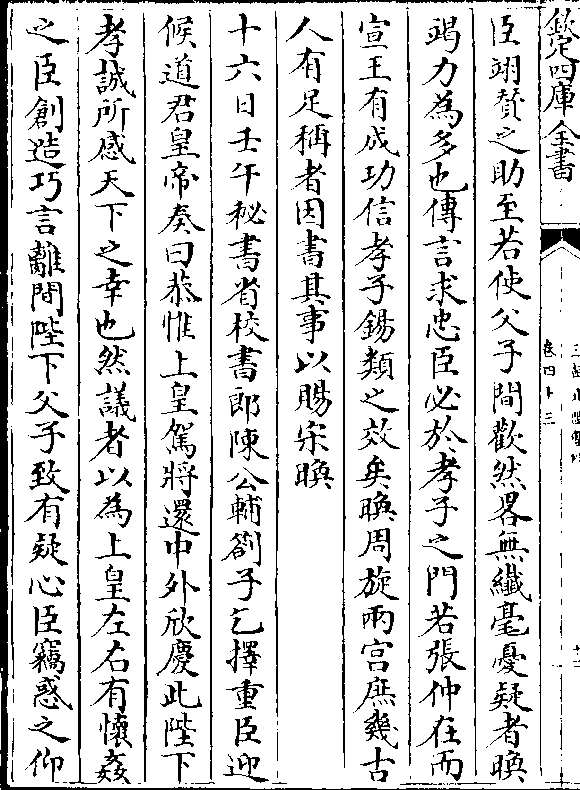 欽定四庫全書
臣翊賛之助至若使父子間歡然畧無纎毫憂疑者㬇
竭力為多也傳言求忠臣必於孝子之門若張仲在而
宣王有成功信孝子錫類之效矣㬇周旋兩宫庶幾古
人有足稱者因書其事以賜宋㬇
十六日壬午秘書省校書郎陳公輔劄子乞擇重臣迎
候道君皇帝奏曰恭惟上皇駕將還中外欣慶此陛下
孝誠所感天下之幸也然議者以為上皇左右有懷姦
之臣創造巧言離間陛下父子致有疑心臣竊惑之仰
卷四十三